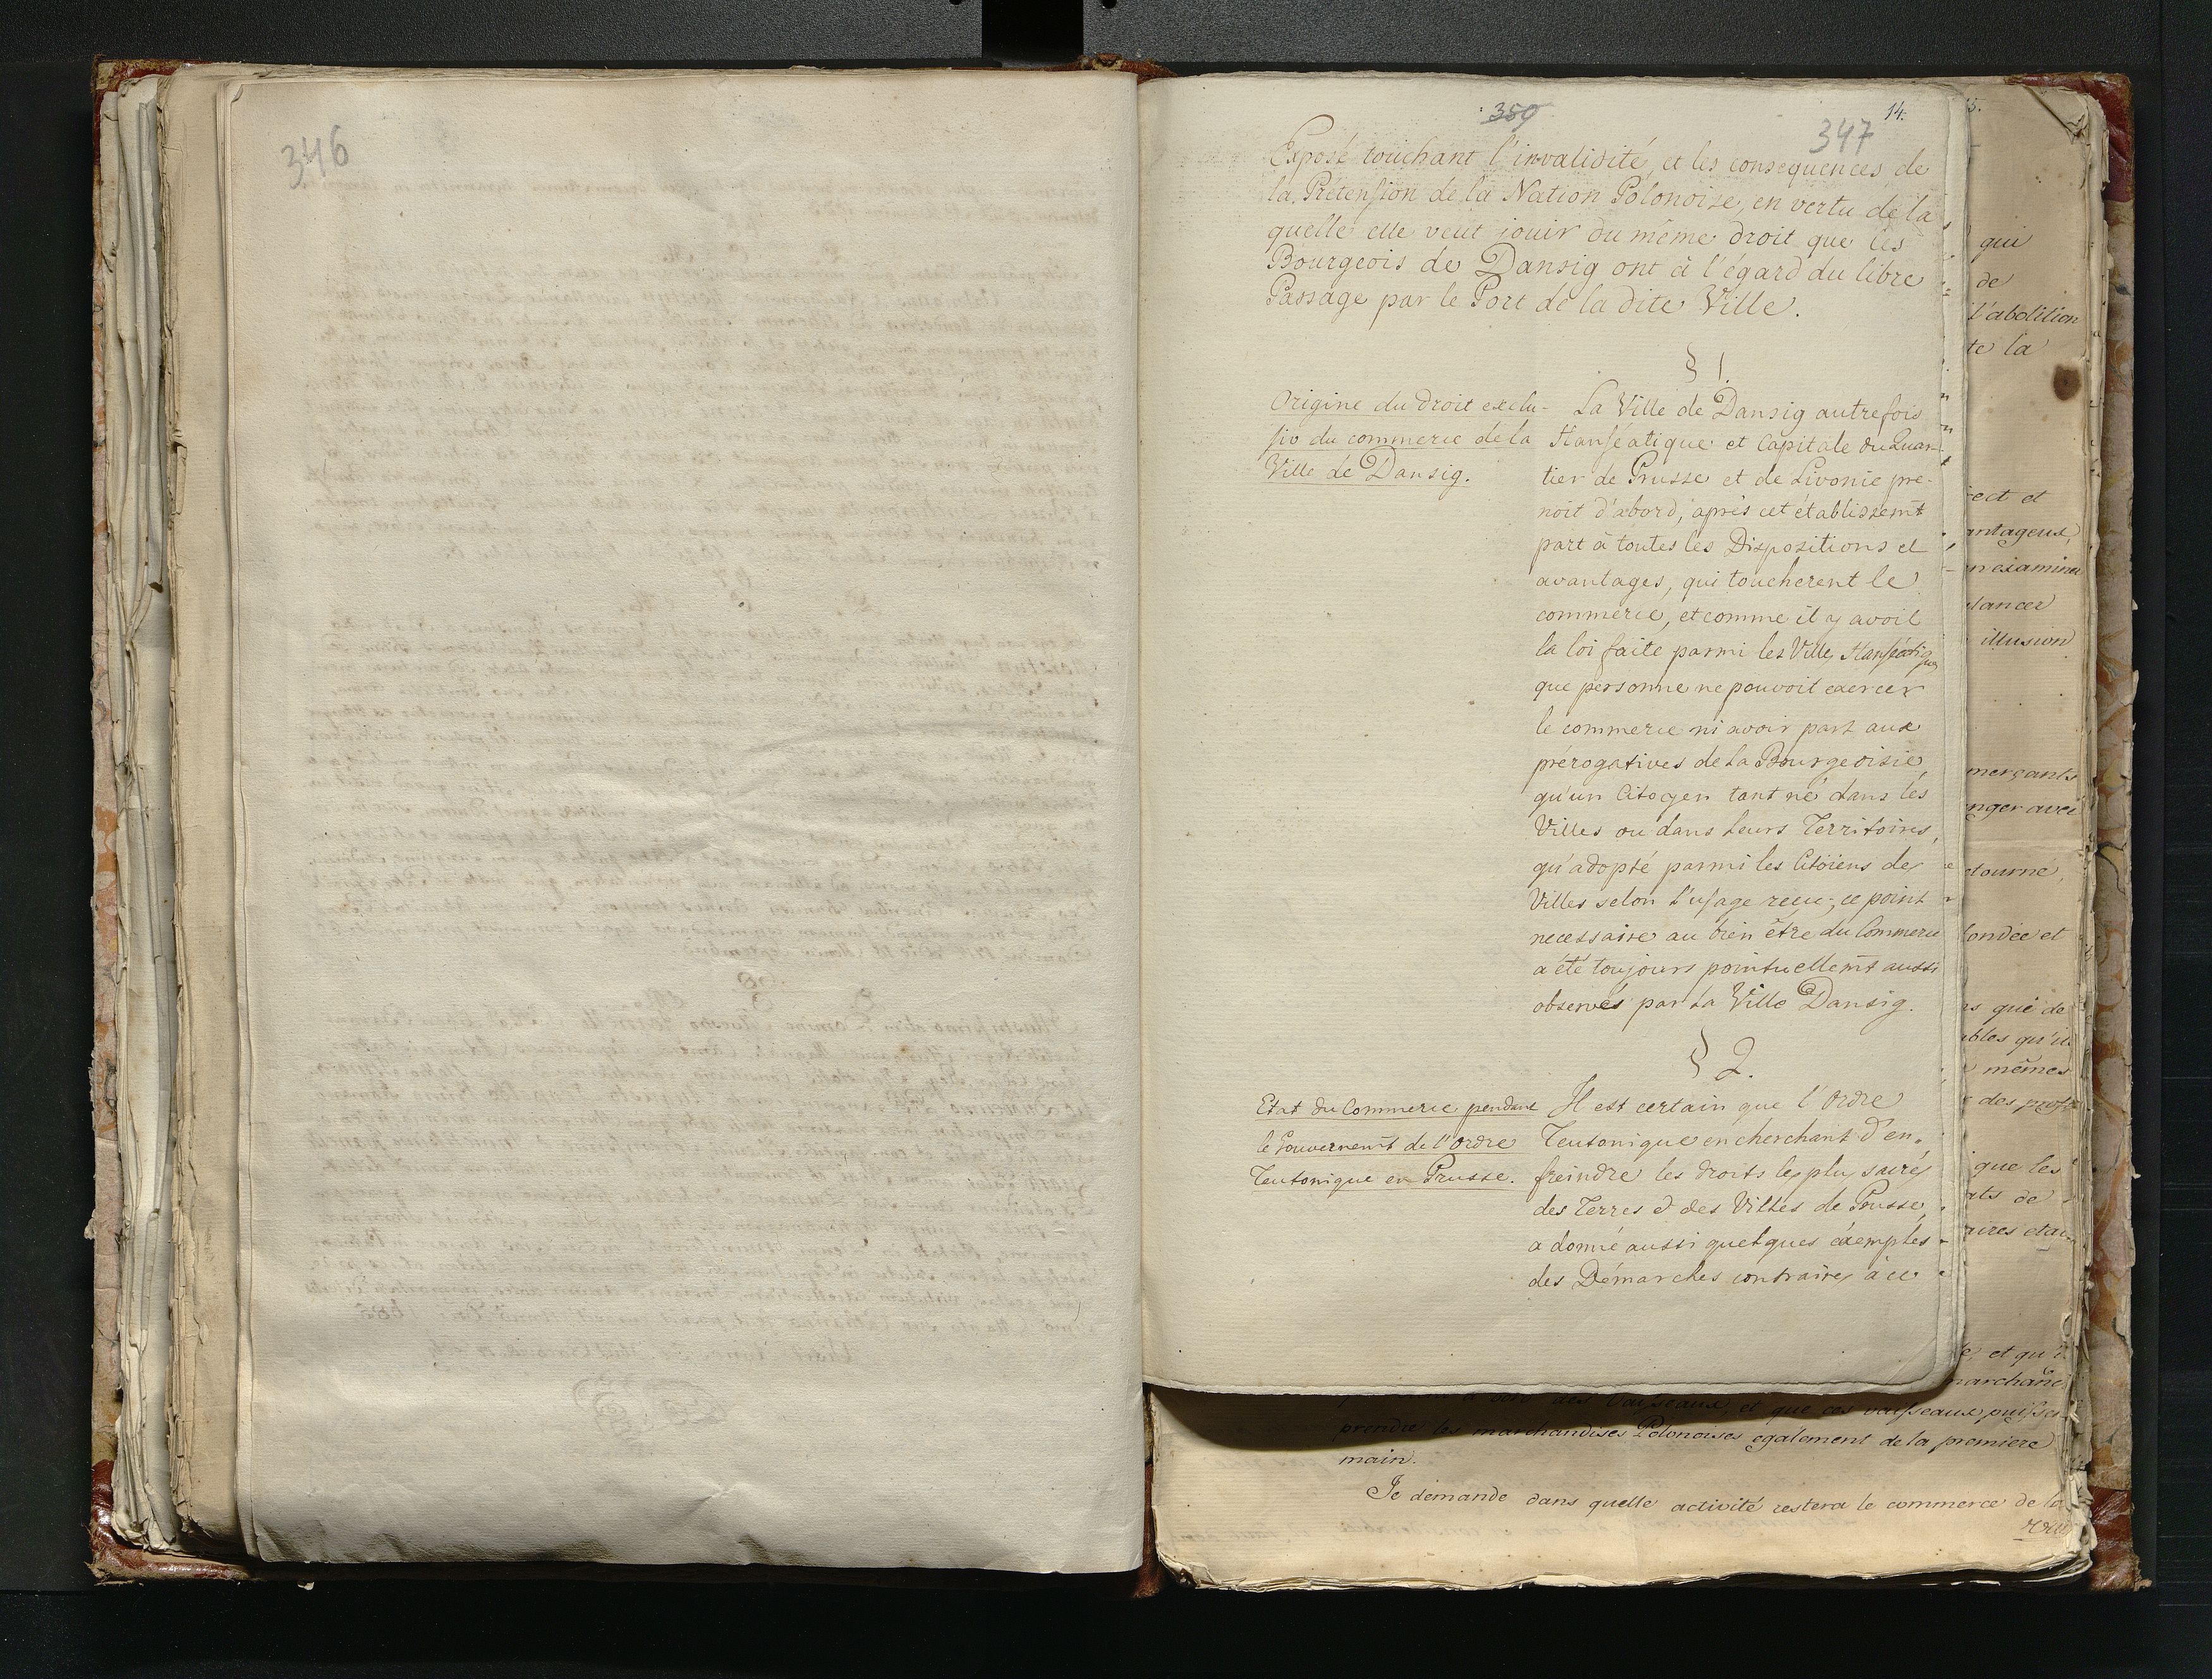 346
359
347
14.
Exposé touchant l'invalidité, et les consequences de
la Prétension de la Nation Polonoise, en vertu de la
quelle elle veut jouir du même droit que les
Bourgeois de Dansig ont à l'égard du libre
Passage par le Port de la dite Ville.
§ 1.
Origine du droit exclu-
siv du commerce de la
Ville de Dansig.
La Ville de Dansig autrefois
Hanséatique et Capitale du Quar-
tier de Prusse et de Livonie pre-
noit d'abord, après cet établissemt
part à toutes les Dispositions et
avantages, qui toucherent le
commerce, et comme il y avoit
la loi faite parmi les Villes Hanséatiques
que personne ne pouvoit exercer
le commerce ni avoir part aux
prérogatives de la Bourgeoisie,
qu'un Citoyen tant né dans les
Villes ou dans leurs Territoires,
qu'adopté parmi les Citoiens des
Villes selon l'usage reçu, ce point
necessaire au bien être du Commerce
a été toujours pointuellemt aussi
observés par la Ville Dansig.
§ 2.
Etat du Commerce pendant
le Gouvernemt de l'Ordre
Teutonique en Prusse.
Il est certain que l'Ordre
Teutonique en cherchant d'en-
freindre les droits les plus sacrés
des Terres & des Villes de Prusse,
a donné aussi quelques éxemples
des Démarches contraires à ce
15.
qui
de
l'abolition
te la
ect et
antageux,
examiner
lancer
illusion
merçants
nger avec
tourné,
ondée et
s que de
bles qu'il
mêmes
des prof
que les
ats de
aires etai
et qu'i
marchand
des vaisseaux, et que ces vaisseaux puisse
prendre les marchandises Polonoises egalement de la premiere
main.
Je demande dans quelle activité restera le commerce de la